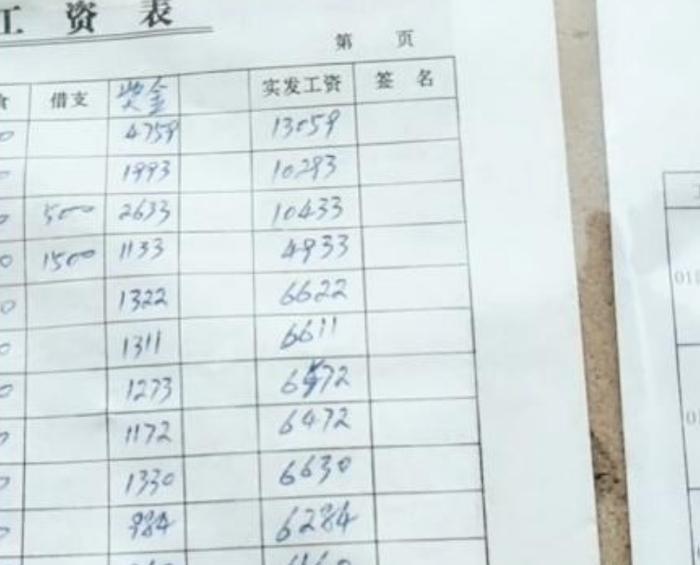 工资表
第 页
食 借支 奖金 实发工资 签名
0 4759 13059
0 1993 10293
0 500 2633 10433
0 1500 1133 4933
0 1322 6622
0 1311 6611
0 1273 6572
0 1172 6472
0 1330 6630
0 984 6284